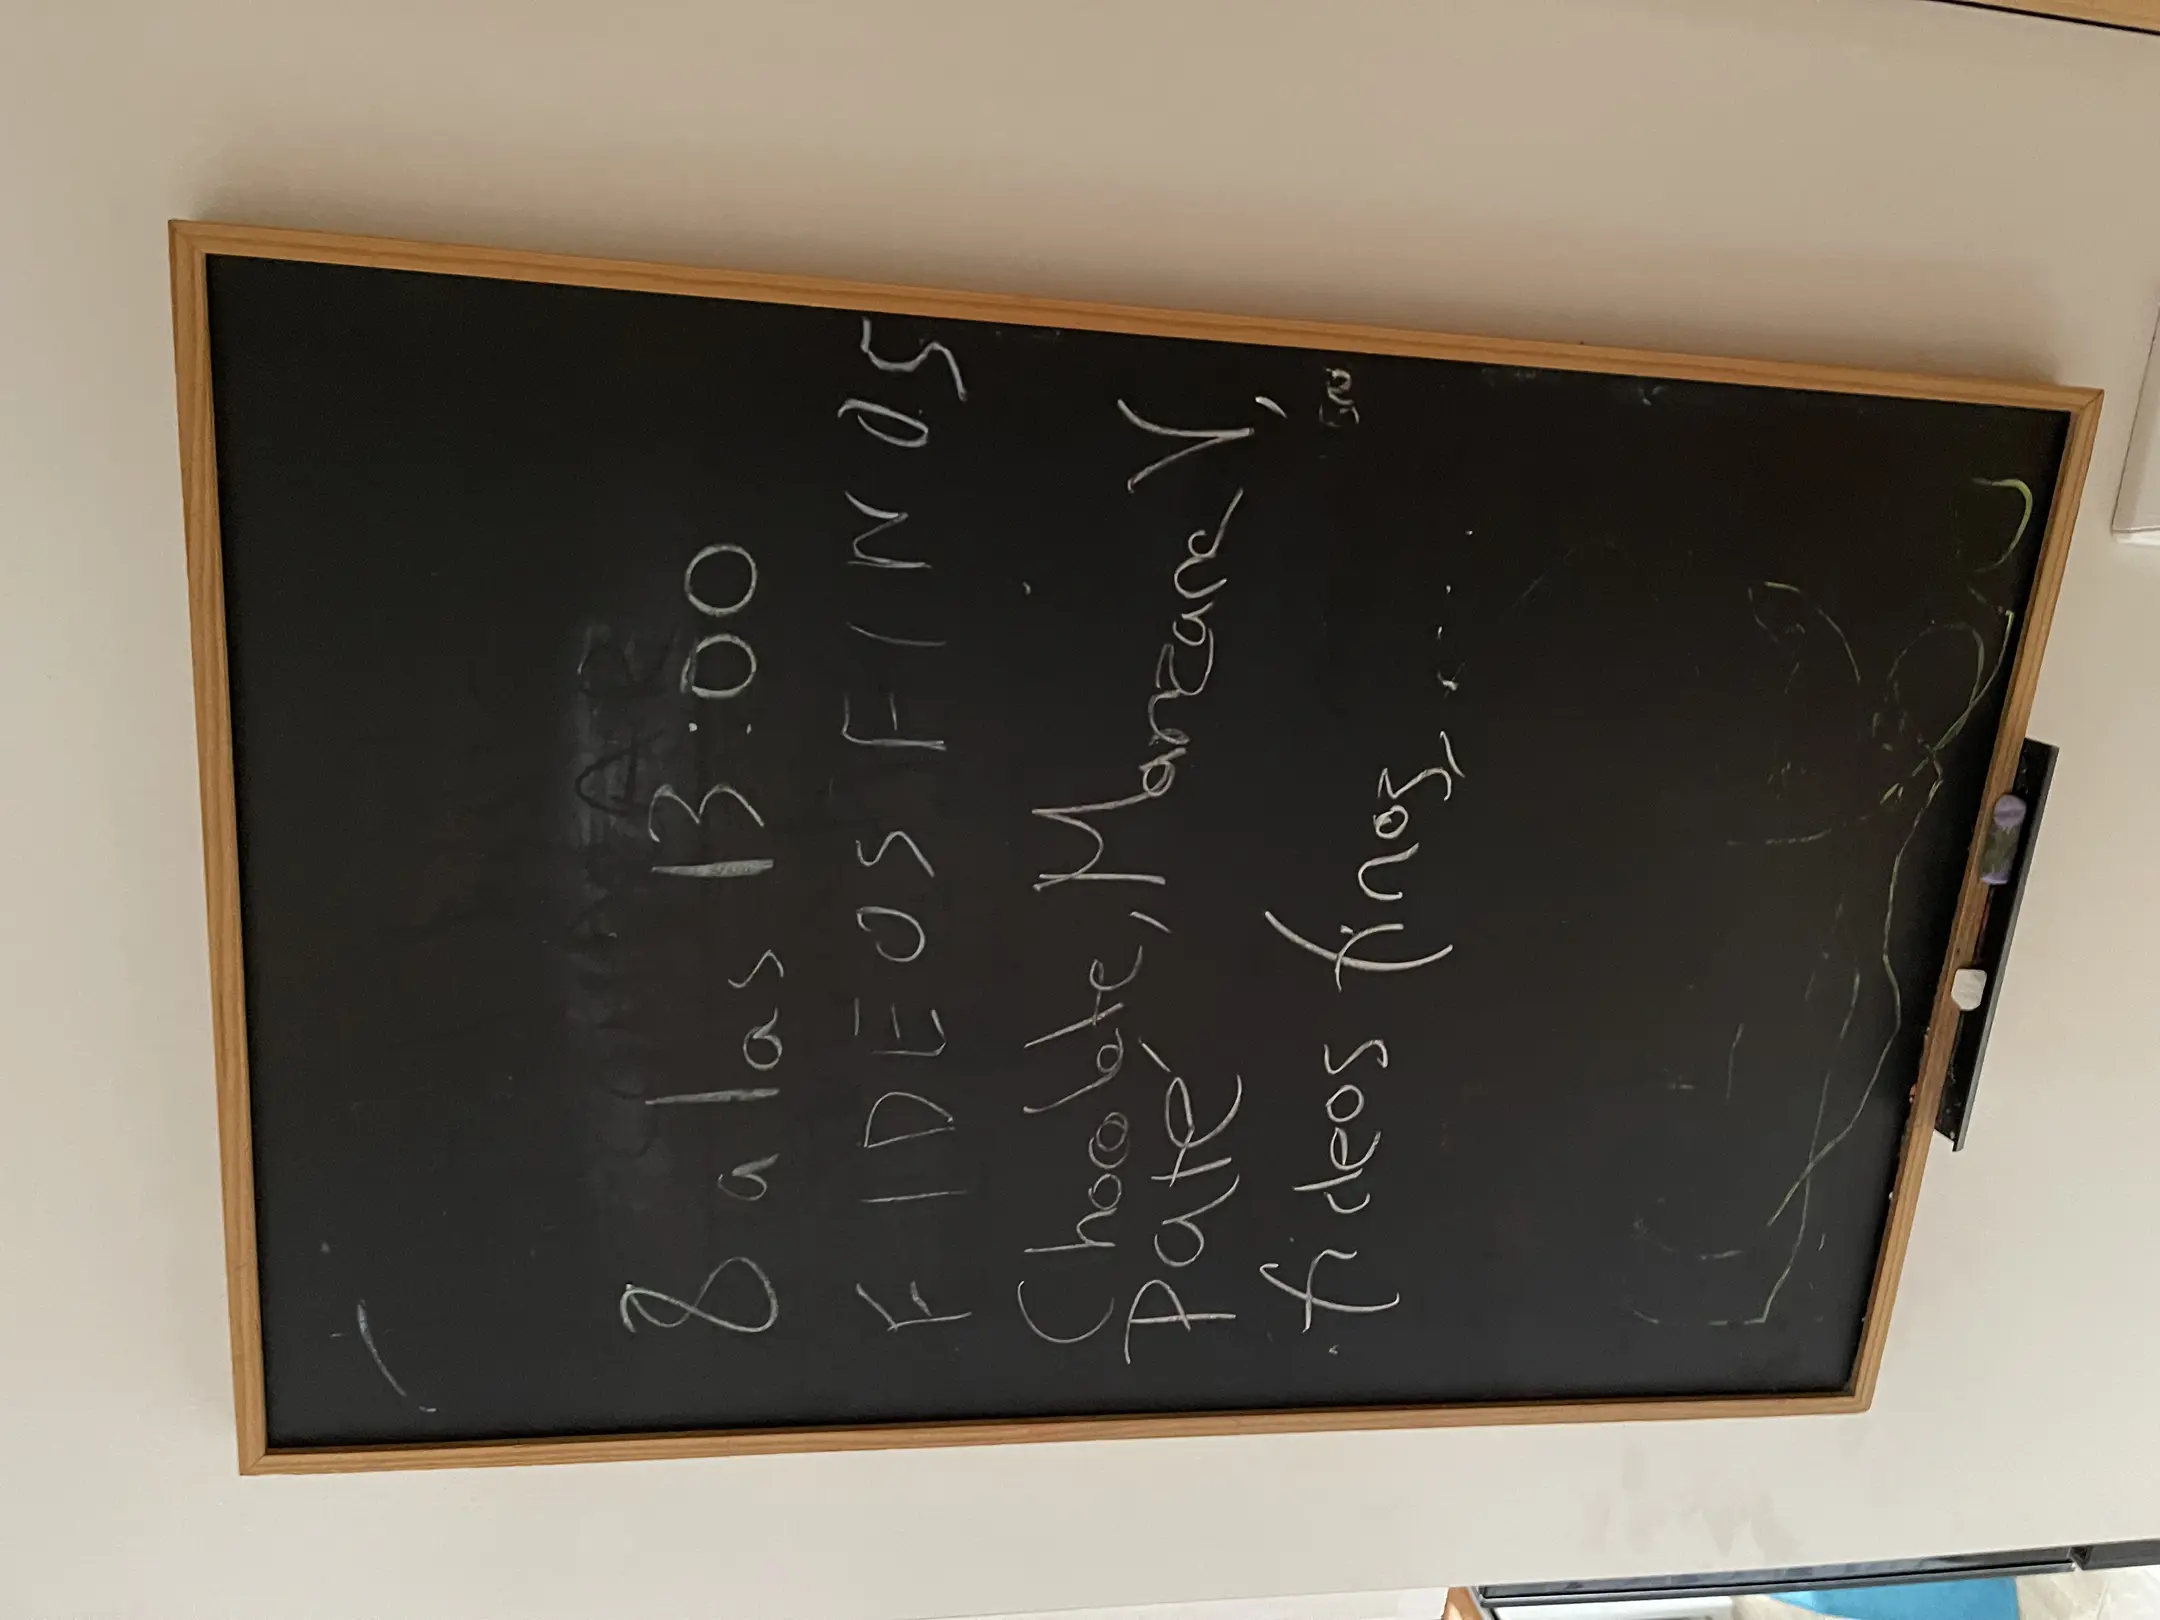 8 a las 13:00
FIDEOS FINOS
Chocolate, Manzana y,
Paté
fideos finos,....